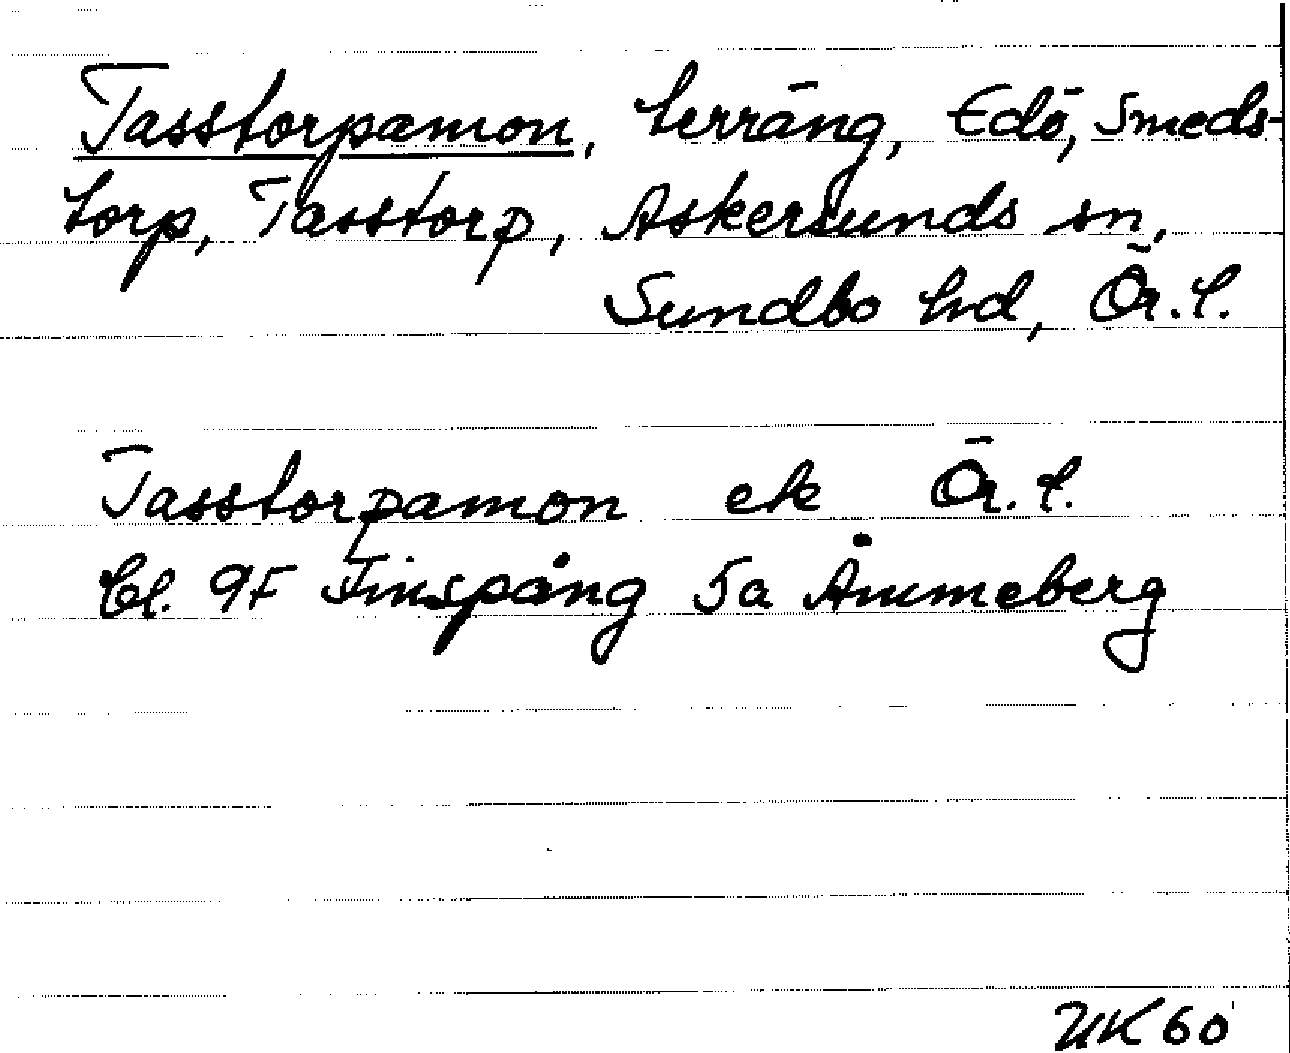 Tasstorpamon, terräng, Edö, Smeds-
torp, Tasstorp, Askersunds sn,
Sundbo hd, Ör. l.
Tasstorpamon ek Ör. l.
bl. 9F Finspång 5a Åmmeberg
UK 60